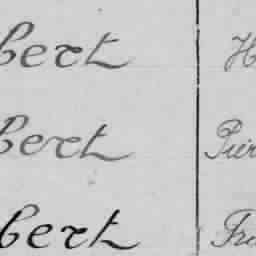 bert H
bert Pier
bert Fra